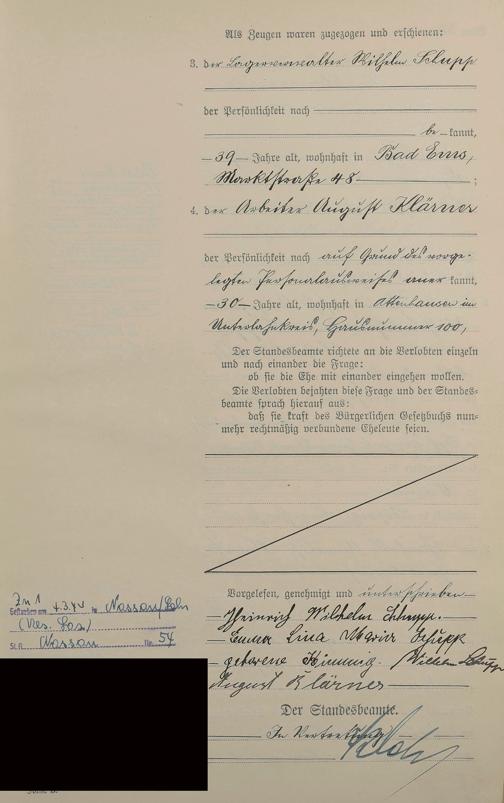 Als Zeugen waren zugezogen und erschienen:
3. der Lagerverwalter Wilhelm Schupp
der Persönlichkeit nach
be kannt,
39 Jahre alt, wohnhaft in Bad Ems,
Marktstraße 48 ;
4. der Arbeiter August Klärner
der Persönlichkeit nach auf Grund des vorge-
legten Personalausweises aner kannt,
30 Jahre alt, wohnhaft in Attenhausen im
Unterlahnkreis, Hausnummer 100,
Der Standesbeamte richtete an die Verlobten einzeln
und nach einander die Frage:
ob sie die Ehe mit einander eingehen wollen.
Die Verlobten bejahten diese Frage und der Standes-
beamte sprach hierauf aus:
daß sie kraft des Bürgerlichen Gesetzbuchs nun-
mehr rechtmäßig verbundene Eheleute seien.
Vorgelesen, genehmigt und unterschrieben
Heinrich Wilhelm Schupp.
Emma Lina Maria Schupp
geborene Wilhelm Schupp
August Klärner
Der Standesbeamte.
In Vertretung
Zu 1
Gestorben am in Nassau/Lahn
St.A. Nassau Nr. 54